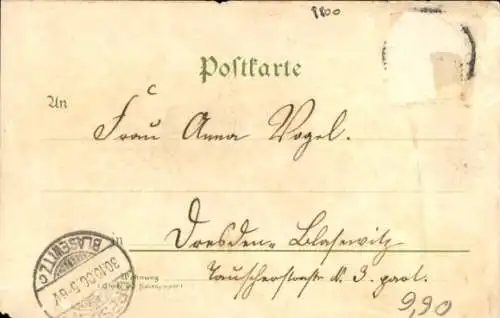 8800
Postkarte
An
Frau Anna Vogel.
in
Dresden-Blasewitz
Tauscherstraße N. 3. part.
Wohnung
(Straße und Hausnummer)
BLASEWITZ
30.10.00.5-6
9,90